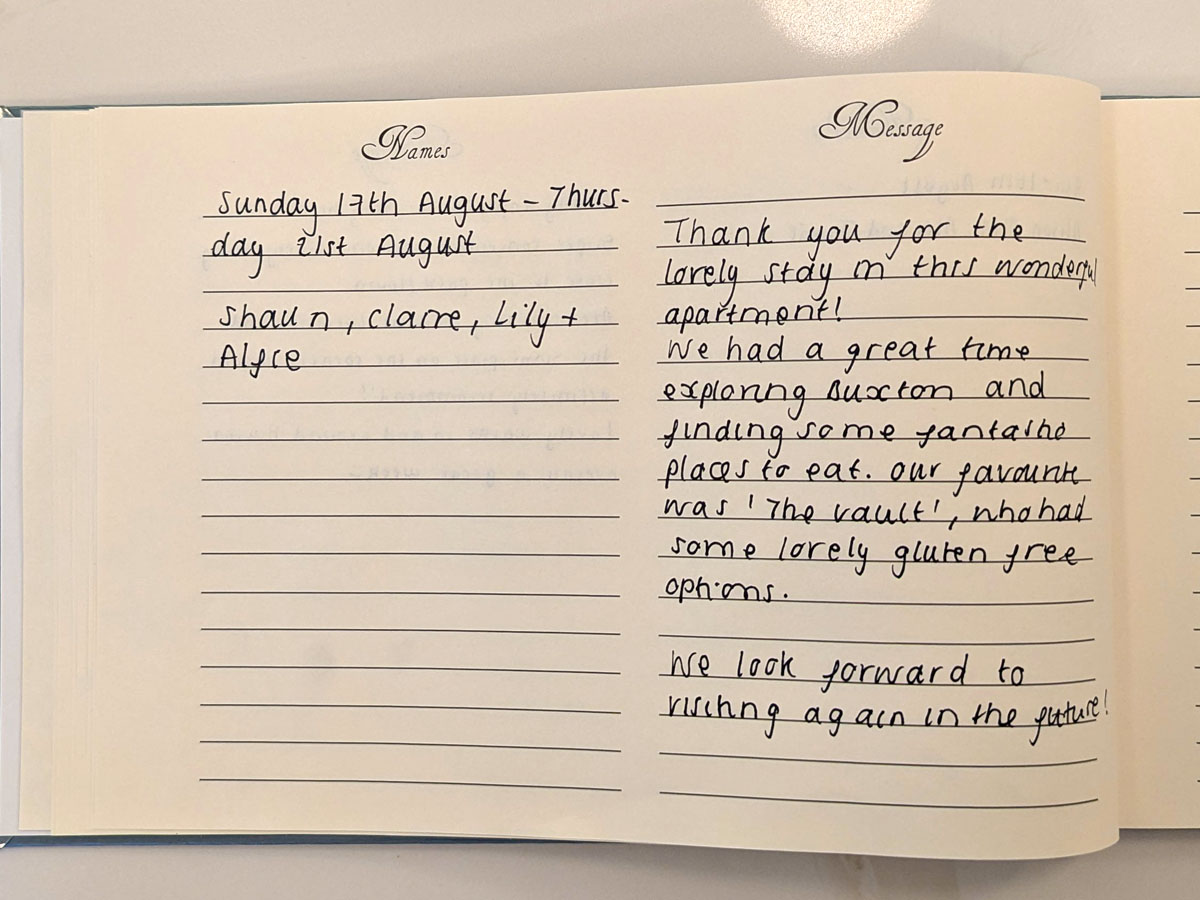 Names
Sunday 17th August - Thurs-
day 21st August
Shaun, Claire, Lily +
Alfie
Message
Thank you for the
lovely stay in this wonderful
apartment!
We had a great time
exploring Buxton and
finding some fantastic
places to eat. Our favourite
was 'The Vault', who had
some lovely gluten free
options.
We look forward to
visiting again in the future!